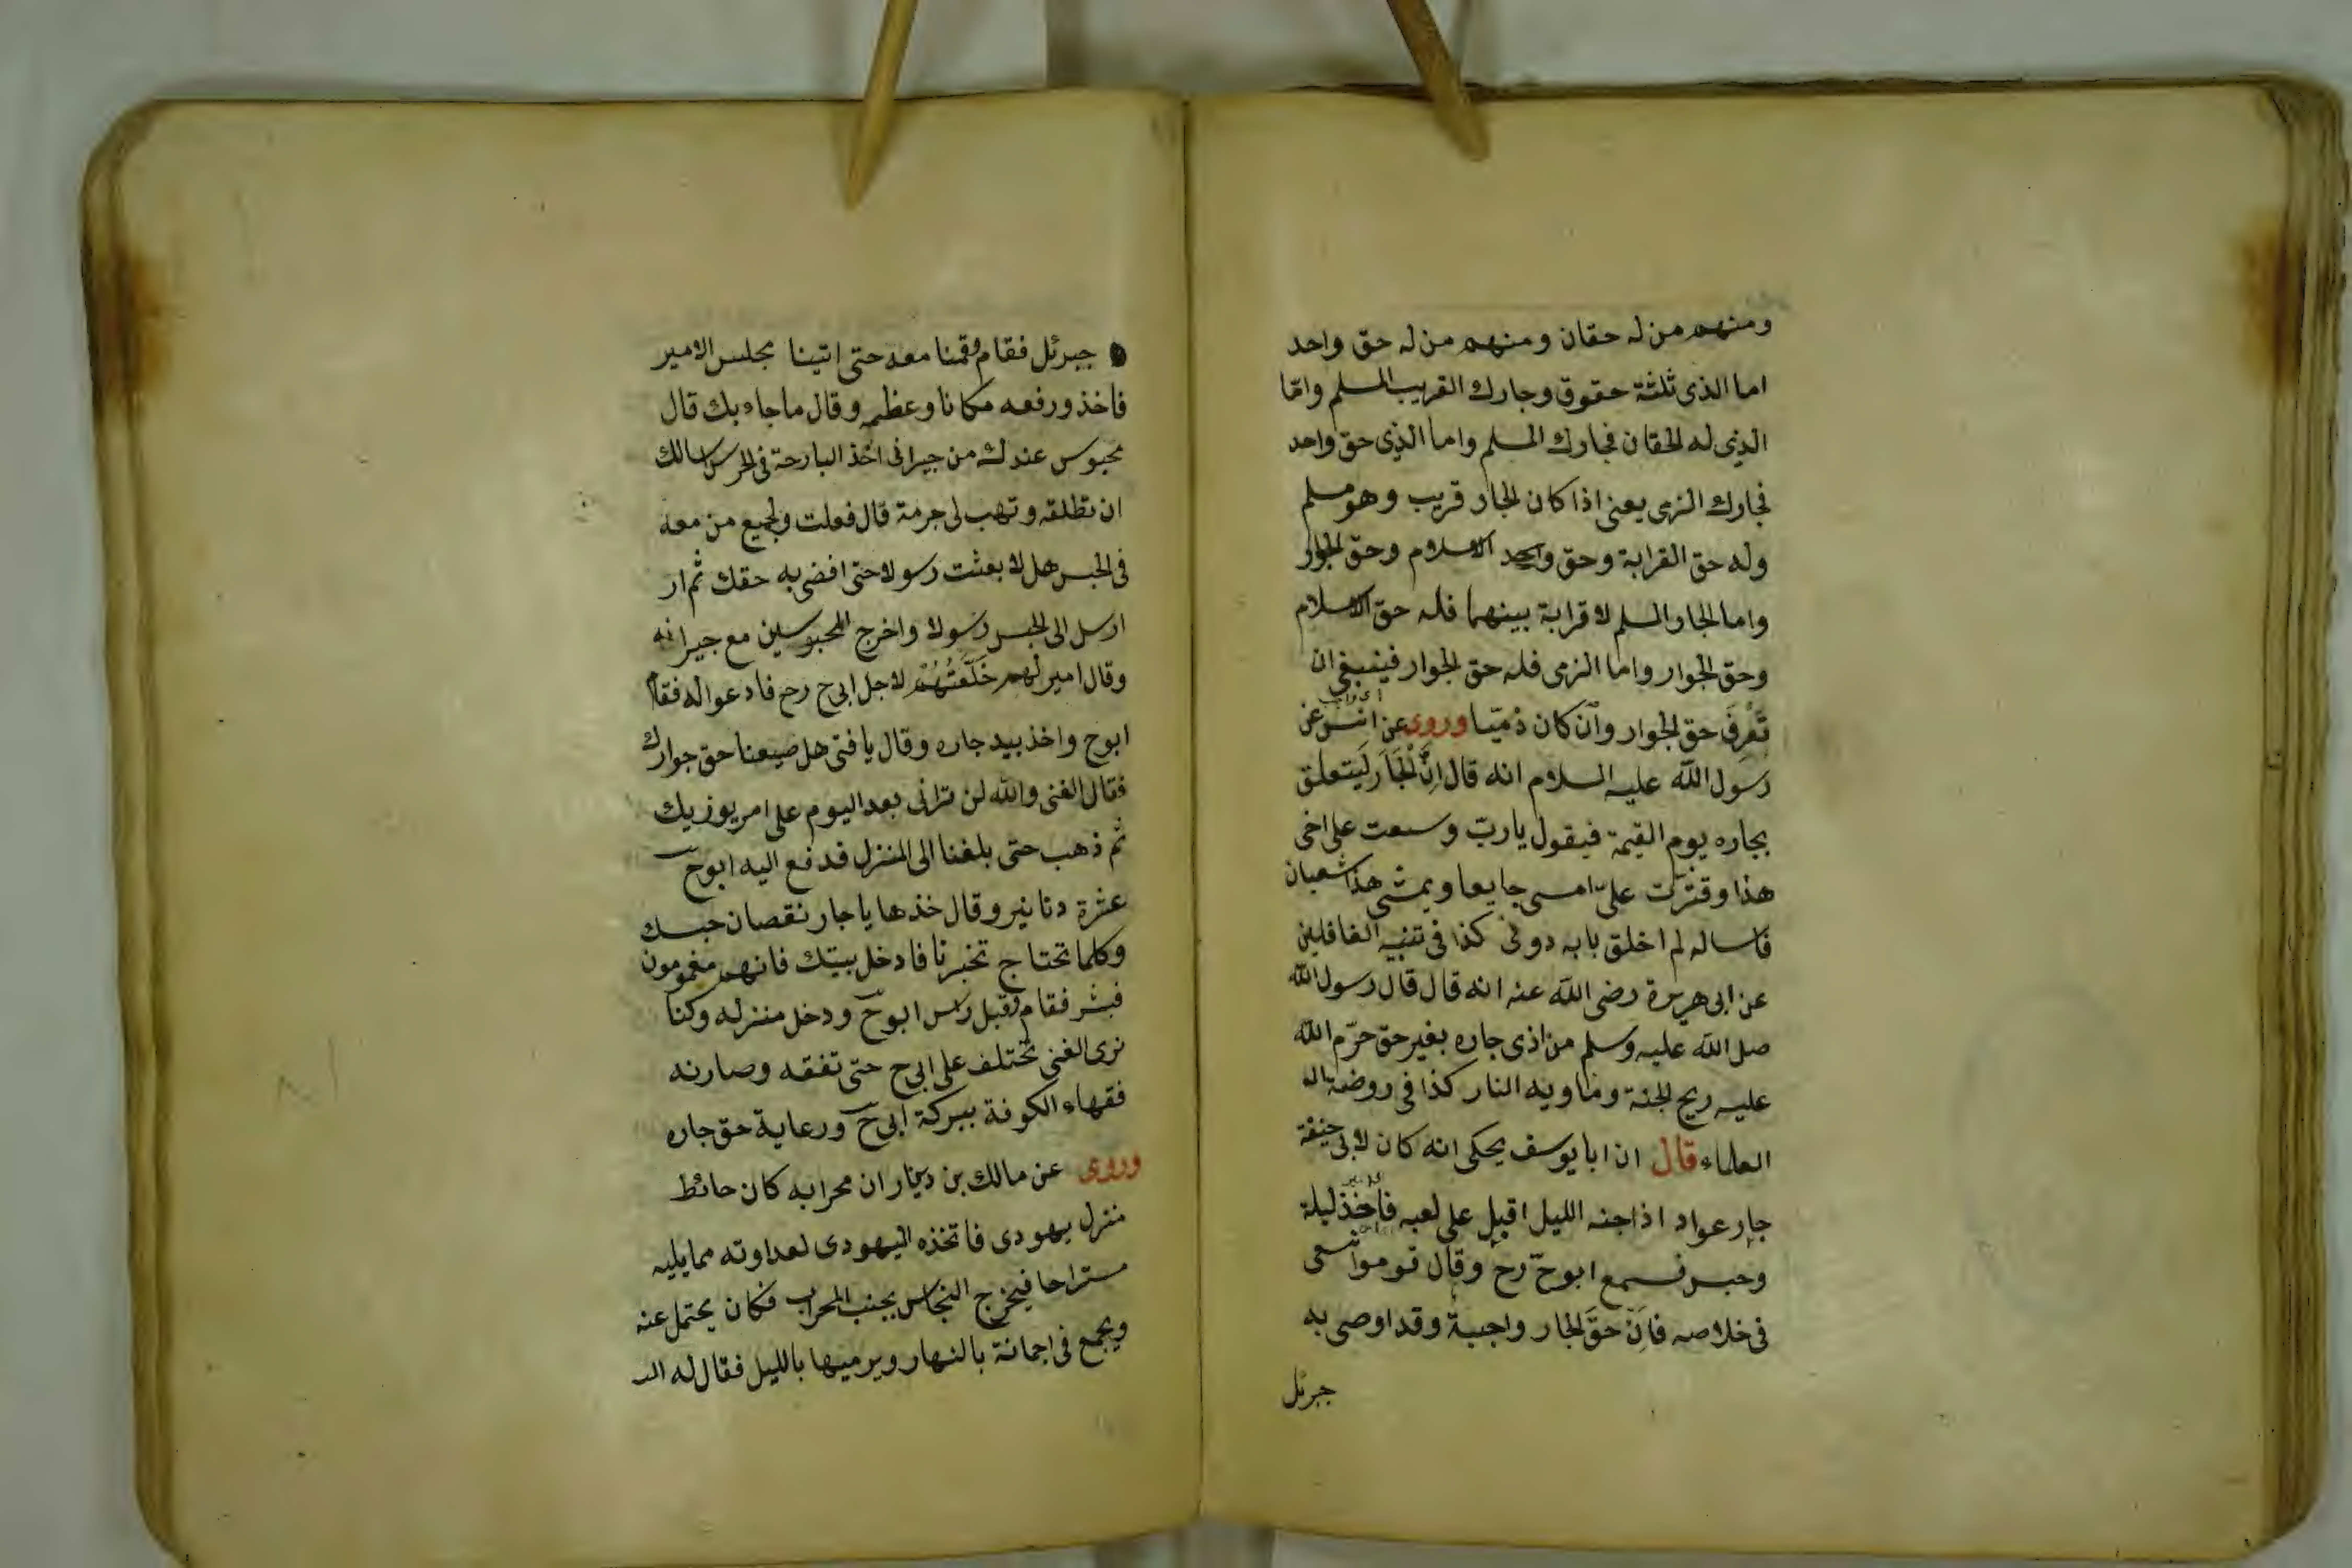 ومنهم من له حقان ومنهم من له حق واحد
اما الذى ثلثة حقوق وجارك القريب المسلم وامّا
الذى له الحقان فجارك المسلم واما الذى حق واحد
فجارك الزمى يعنى اذا كان الجار قريب وهو مسلم
وله حق القرابة وحق واحد الاسلام وحق الجوار
واما الجار المسلم لا قرابة بينهما فله حق الاسلام
وحق الجوار واما الزمى فله حق الجوار فينبغى ان
تَعْرِفَ حق الجوار وان كان ذميّا وروى عن انس عن
رسول اللّه عليه السلام انه قال اِنَّ الْجَارَ لَيَتعلق
بجاره يوم القيمة فيقول يا ربّ وسعت على اخى
هذا وقترت علىّ امسى جايعا ويمشى هذا شعبان
فاساله لم اخلق بابه دونى كذا فى تنبيه الغافلين
عن ابى هريرة رضى اللّه عنه انه قال قال رسول اللّه
صل اللّه عليه وسلم من اذى جاره بغير حق حرّم اللّه
عليه ريح الجنة وماويه النار كذا فى روضة
العلماء قال ان ابا يوسف يحكى انه كان لابى حنيفة
جار عواد اذا جنه الليل اقبل على لعبه فاخذ ليلة
وحبس فسمع ابوح رح وقال قوموا نسعى
فى خلاصه فاِنّ حقَ الجار واجبة وقد اوصى به
جبرئل
جبرئل فقام وقمنا معه حتى اتينا مجلس الامير
فاخذ ورفعه مكانا وعظمه وقال ما جاء بك قال
محبوس عندك من جيرانى اخذ البارحة فى الحرس اسالك
ان تطلقه وتهب لى جرمة قال فعلت ولجميع من معه
فى الحبس هل لا بعثت رسولا حتى افضى به حقك ثم ار
ارسل الى الحبس رسولا واخرج المحبوسين مع جيرانه
وقال امير لهم خَلَّعَتُهُمْ لاجل ابى ح رح فادعوا له فقام
ابوح واخذ بيد جاره وقال يا فتى هل ضيعنا حق جوارك
فقال الغنى واللّه لن ترانى بعد اليوم على امر يوزيك
ثم ذهب حتى بلغنا الى المنزل فدفع اليه ابوح
عشرة دنانير وقال خذها يا جار نقصان حبسك
وكلما تحتاج تخبرنا فادخل بيتك فانهم مغمومون
فبشر فقام وقبل راس ابوح ودخل منزله وكنا
نرى الغنى تختلف على ابى ح حتى تفقه وصار نه
فقهاء الكوفة ببركة ابى ح ورعاية حق جاره
وروى عن مالك بن دينار ان محرابه كان حائط
منزل يهودى فاتخذه اليهودى لعداوته مما يليه
مستراحا فيخرج النجاس بجنب المحراب فكان يحتمل عنه
ويجمع فى اجانة بالنهار ويرميها بالليل فقال له